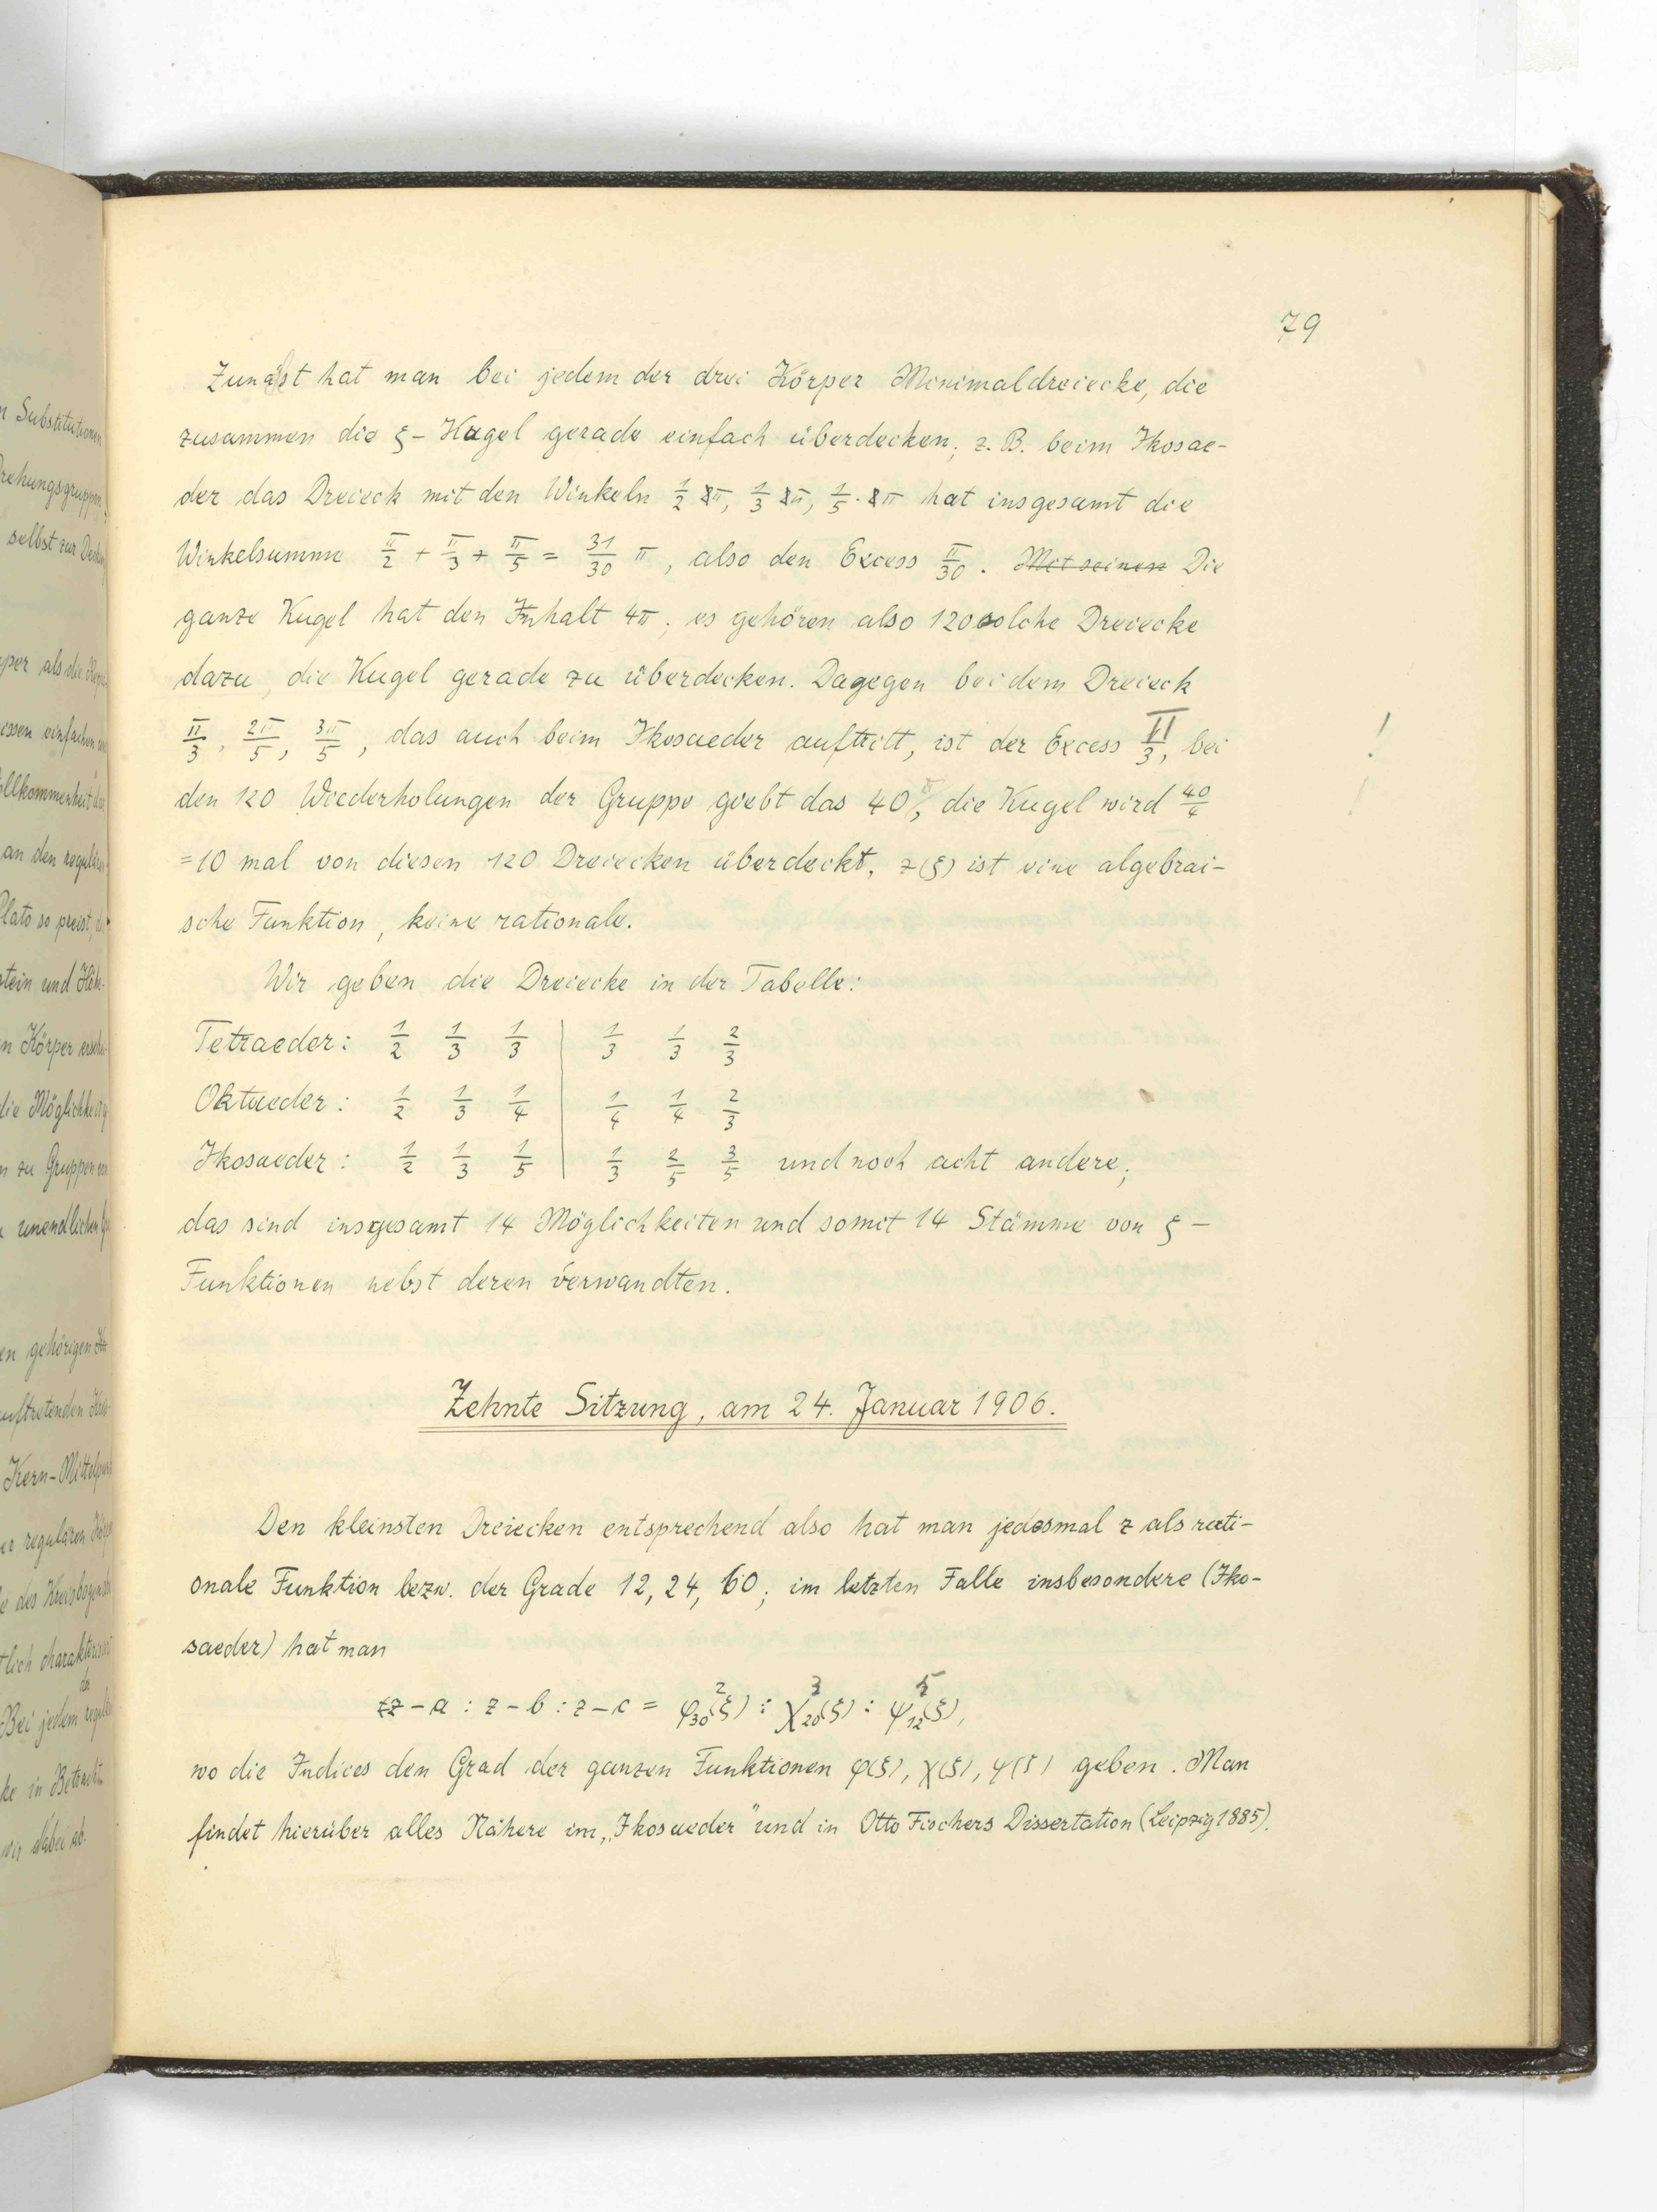 79
Zunächst hat man bei jedem der drei Körper Minimaldreiecke, die
zusammen die ξ-Kugel gerade einfach überdecken; z. B. beim Ikosae-
der das Dreieck mit den Winkeln 1/2 π, 1/3 π, 1/5 · π hat insgesamt die
Winkelsumme π/2 + π/3 + π/5 = 31/30 π, also den Excess π/30. Mit seinen Die
ganze Kugel hat den Inhalt 4π; es gehören also 120 solche Dreiecke
dazu, die Kugel gerade zu überdecken. Dagegen bei dem Dreieck
π/3, 2π/5, 3π/5, das auch beim Ikosaeder auftritt, ist der Excess π/3, bei !
den 120 Wiederholungen der Gruppe giebt das 40π, die Kugel wird 40/4 !
=10 mal von diesen 120 Dreiecken überdeckt, z(ξ) ist eine algebrai-
sche Funktion, keine rationale.
Wir geben die Dreiecke in der Tabelle:
Tetraeder: 1/2 1/3 1/3 | 1/3 1/3 2/3
Oktaeder: 1/2 1/3 1/4 | 1/4 1/4 2/3
Ikosaeder: 1/2 1/3 1/5 | 1/3 2/5 3/5 und noch acht andere;
das sind insgesamt 14 Möglichkeiten und somit 14 Stämme von ξ-
Funktionen nebst deren verwandten.
Zehnte Sitzung, am 24. Januar 1906.
Den kleinsten Dreiecken entsprechend also hat man jedesmal z als rati-
onale Funktion bezw. der Grade 12, 24, 60; im letzten Falle insbesondere (Iko-
saeder) hat man
z-a : z-b : z-c = φ₃₀²(ξ) : χ₂₀³(ξ) : ψ₁₂⁵(ξ),
wo die Indices den Grad der ganzen Funktionen φ(ξ), χ(ξ), ψ(ξ) geben. Man
findet hierüber alles Nähere im „Ikosaeder" und in Otto Fischers Dissertation (Leipzig 1885).